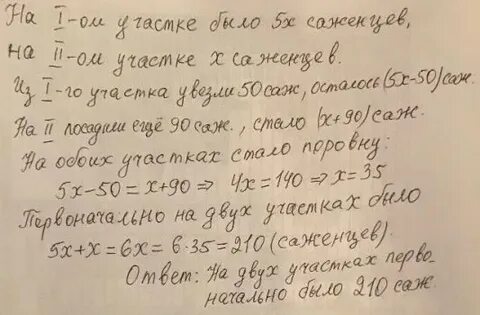 На I-ом участке было 5x саженцев,
на II-ом участке x саженцев.
Из I-го участка увезли 50 саж, осталось (5x-50) саж.
На II посадили ещё 90 саж., стало (x+90) саж.
На обоих участках стало поровну:
5x-50=x+90 ⇒ 4x=140 ⇒ x=35
Первоначально на двух участках было
5x+x=6x=6·35=210 (саженцев).
Ответ: На двух участках перво-
начально было 210 саж.